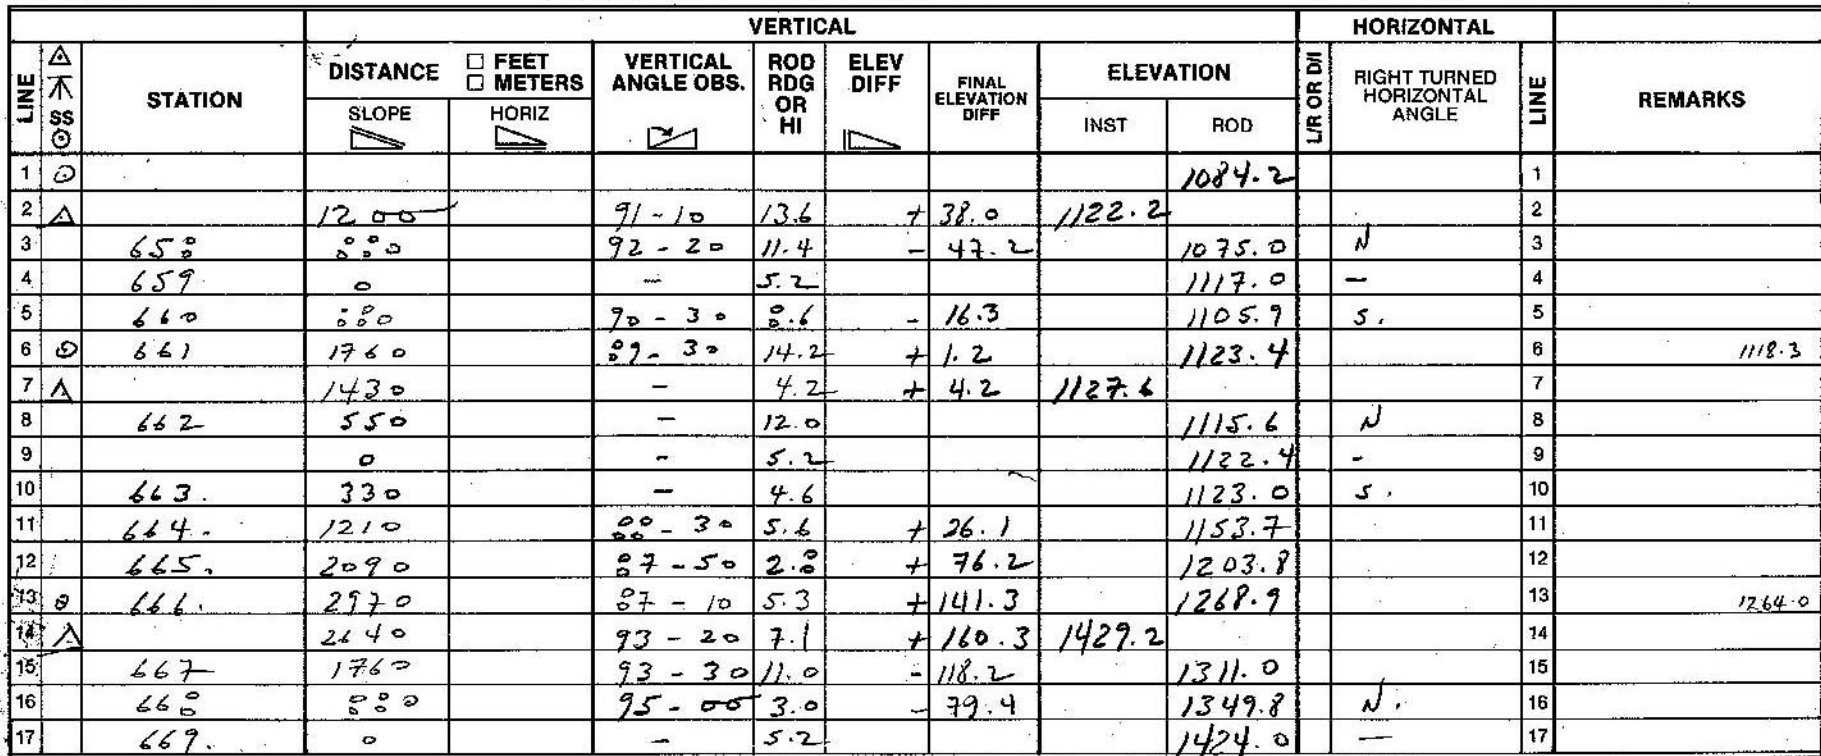 VERTICAL HORIZONTAL
LINE SS STATION DISTANCE □ FEET □ METERS VERTICAL ANGLE OBS. ROD RDG OR HI ELEV DIFF FINAL ELEVATION DIFF ELEVATION L/R OR D/I RIGHT TURNED HORIZONTAL ANGLE LINE REMARKS
SLOPE HORIZ INST ROD
1 1084.2 1
2 1200 91-10 13.6 + 38.0 1122.2 2
3 658 880 92-20 11.4 - 47.2 1075.0 N 3
4 659. 0 - 5.2 1117.0 - 4
5 660 880 90-30 8.6 - 16.3 1105.9 S. 5
6 661 1760 89-30 14.2 + 1.2 1123.4 6 1118.3
7 1430 - 4.2 + 4.2 1127.6 7
8 662 550 - 12.0 1115.6 N 8
9 0 - 5.2 1122.4 - 9
10 663. 330 - 4.6 1123.0 S. 10
11 664. 1210 88-30 5.6 + 26.1 1153.7 11
12 665. 2090 87-50 2.8 + 76.2 1203.8 12
13 666. 2970 87-10 5.3 + 141.3 1268.9 13 1264.0
14 2640 93-20 7.1 + 160.3 1429.2 14
15 667 1760 93-30 11.0 - 118.2 1311.0 15
16 668 880 95-00 3.0 - 79.4 1349.8 N. 16
17 669. 0 - 5.2 1424.0 - 17